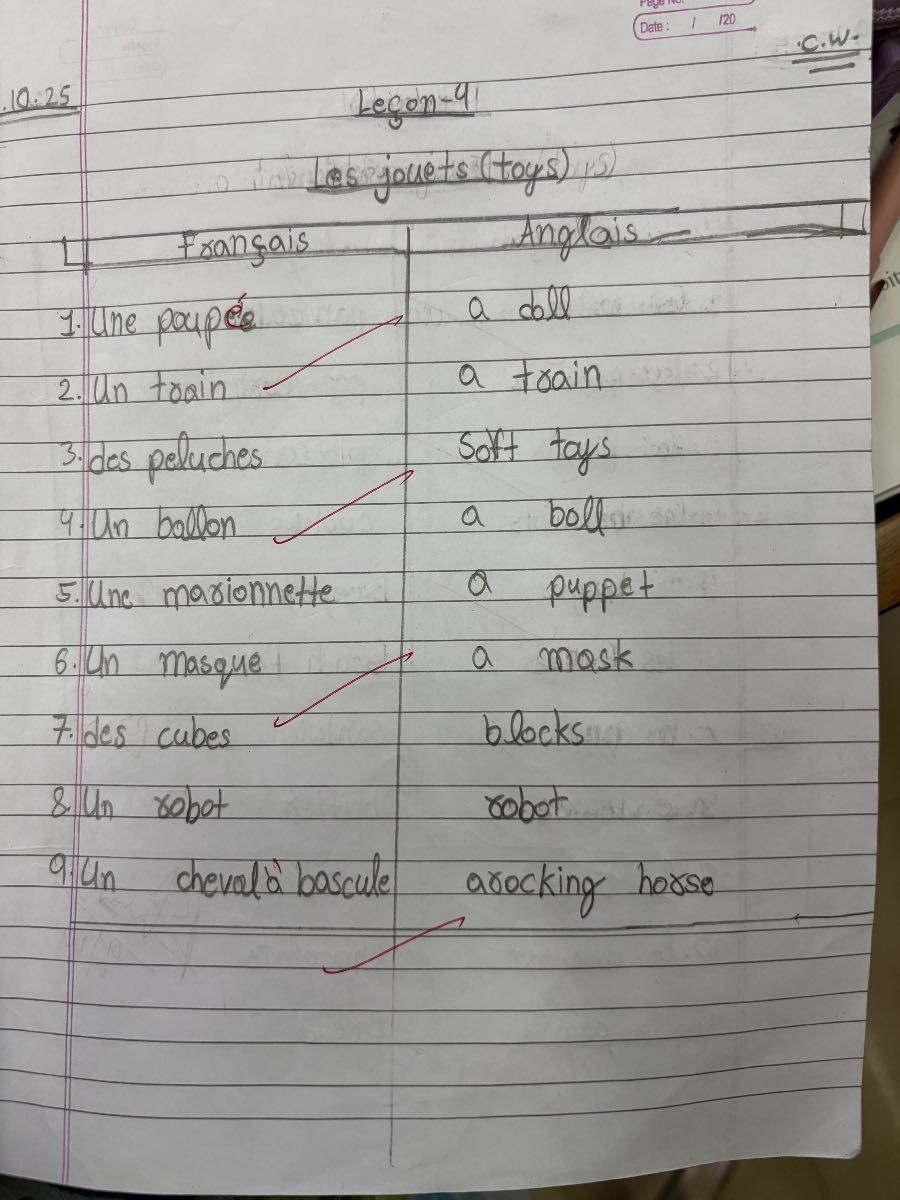 Page No.
Date: / /20
.C.W.
.10.25
Leçon-4
Les jouets (toys)
Français Anglais
1. Une poupée a doll
2. Un train a train
3. des peluches Soft toys
4. Un ballon a boll
5. Une marionnette a puppet
6. Un masque a mask
7. des cubes blocks
8. Un robot robot
9. Un cheval à bascule arocking horse